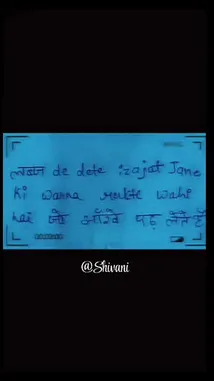 लफ्ज़ de dete izajat Jane
ki warna rokte wahi
hai जो आँखे पढ़ लेते हैं
@Shivani